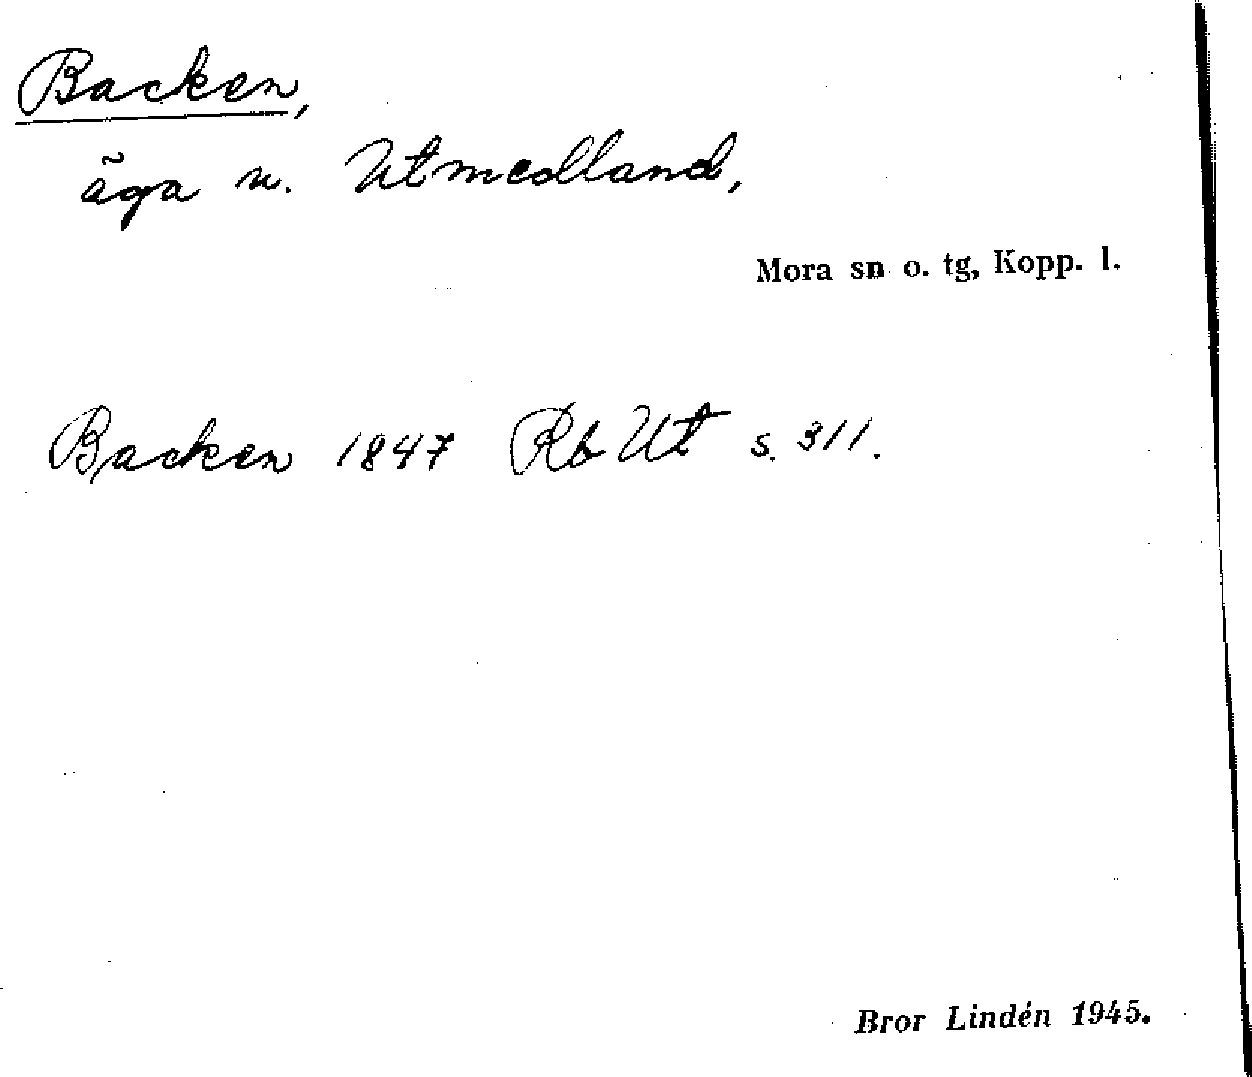 Backen,
äga u. Utmedland,
Mora sn o. tg, Kopp. l.
Backen 1847 Rb Ut s. 311.
Bror Lindén 1945.